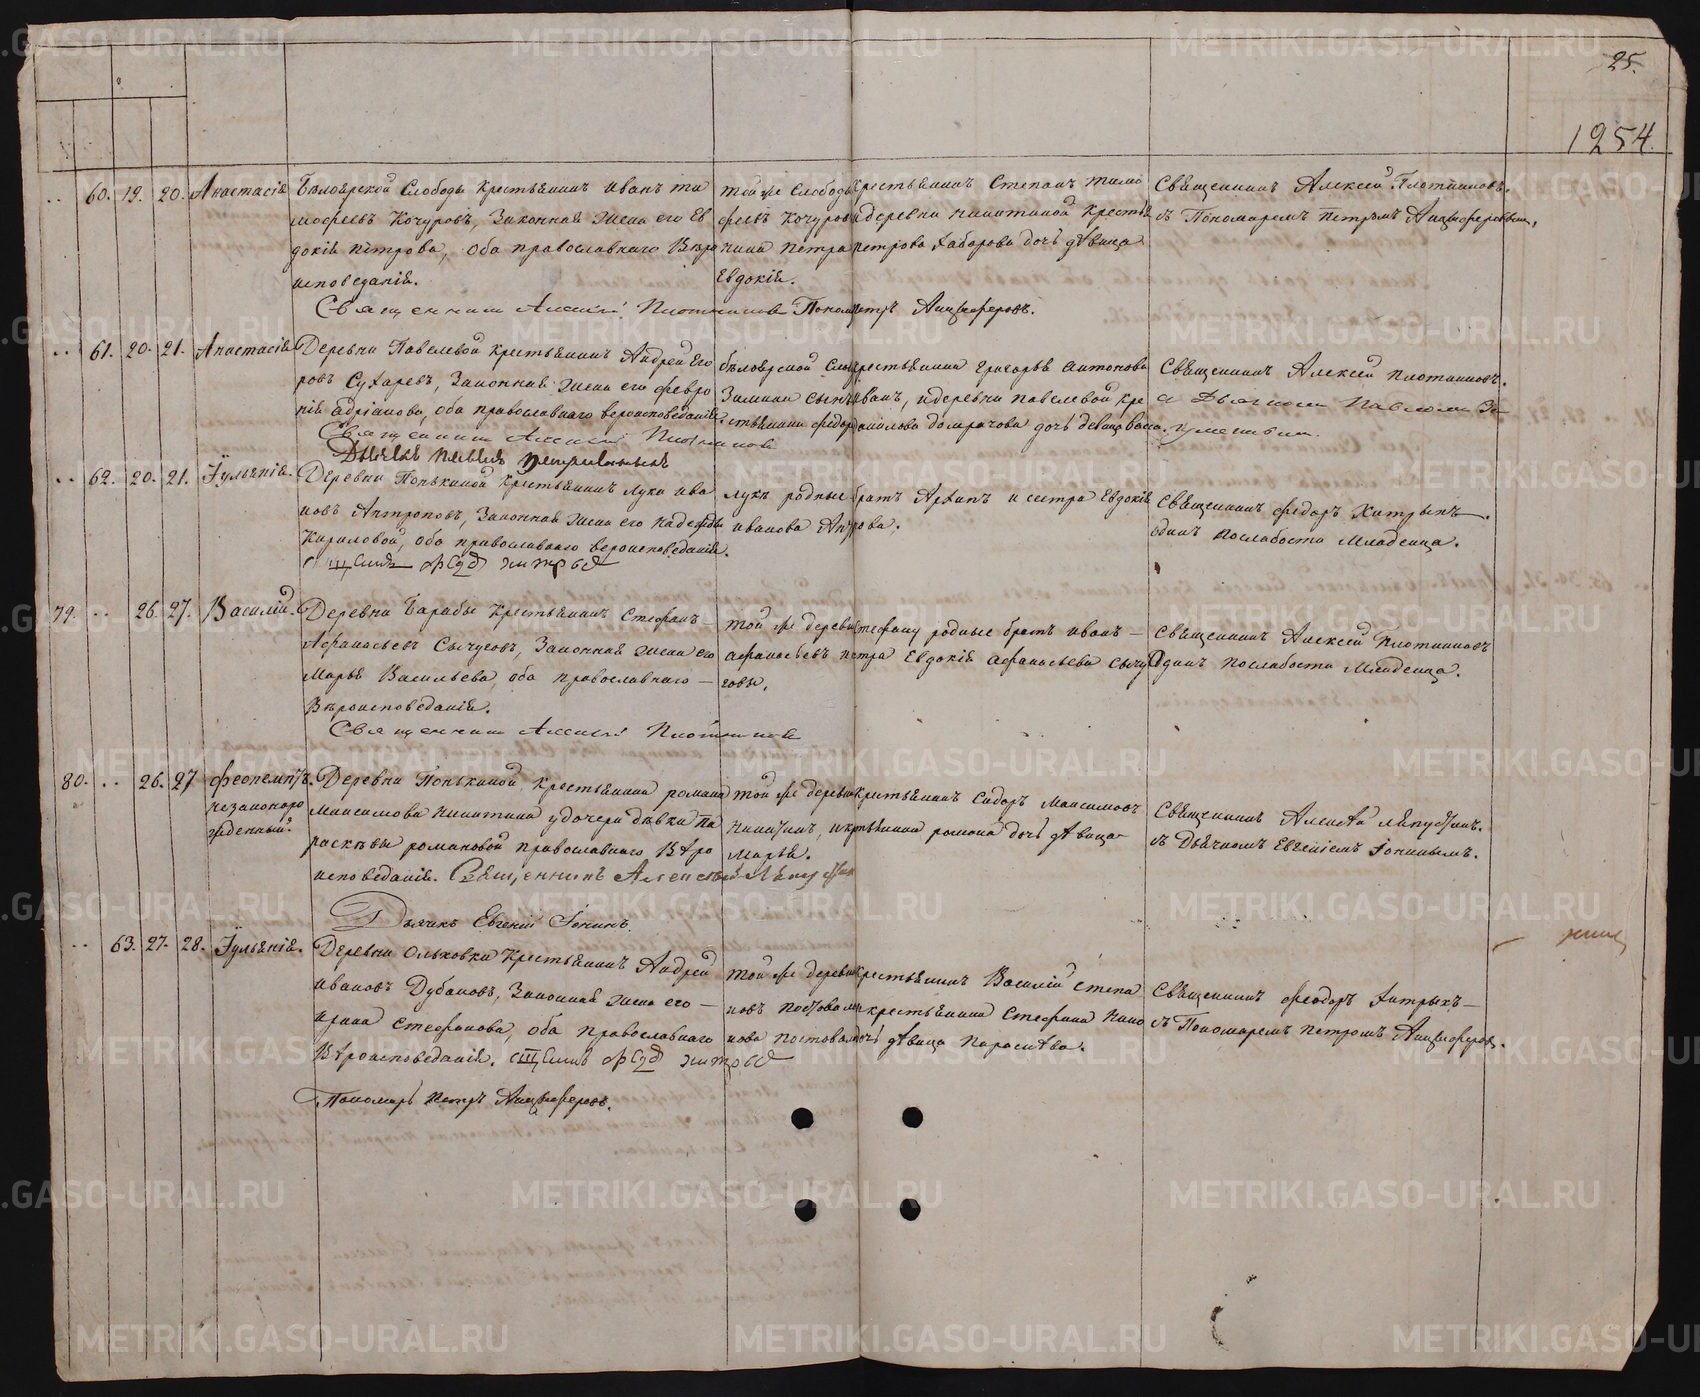 25.
1254.
60. 19. 20. Анастасія
Бѣлоярской Слободы крестьянинъ Иванъ Ти
мофеевъ Кочуровъ, Законная жена его Ев
докія Петрова, оба православнаго Вѣро
исповеданія.
Священникъ Алексій Плотниковъ Пономарь Петръ Анциферовъ.
той же Слободы крестьянинъ Степанъ Тимо
феевъ Кочуровъ и деревни Никитиной крестья
нина Петра Петрова Хабарова дочь дѣвица
Евдокія.
Священникъ Алексей Плотниковъ.
съ Пономаремъ Петромъ Анциферовымъ.
61. 20. 21. Анастасія
Деревни Павелевой крестьянинъ Андрей Его
ровъ Сухаревъ, Законная жена его Февро
нія Адріанова, оба православнаго вероисповеданія.
Священникъ Алексій Плотниковъ
Дьячекъ Павелъ
бѣлоярской Слободы крестьянина Григорья Антонова
Зимина сынъ Иванъ, и деревни Павелевой кре
стьянина Федора дочь девица
Священникъ Алексей Плотниковъ.
съ Дьячкомъ Павломъ
62. 20. 21. Іулянія.
Деревни Понькиной крестьянинъ Лука Ива
новъ Антроповъ, Законная жена его Надежда
Кириловой, оба православнаго вероисповеданія.
Лукѣ родные братъ Архипъ и сестра Евдокія
Иванова
Священникъ Федоръ Хитрыхъ.
одинъ послабости Младенца.
79. 26. 27. Василій.
Деревни Барабы крестьянинъ Стефанъ
Афанасьевъ Сычуговъ, Законная жена его
Марья Васильева, оба православнаго
Вѣроисповеданія.
Священникъ Алексій Плотниковъ
той же деревни Стефану родные братъ Иванъ
Афанасьевъ сестра Евдокія Афанасьева Сычу
говы.
Священникъ Алексей Плотниковъ
Одинъ послабости Младенца.
80. 26. 27 Феопемптъ.
незаконоро
жденный.
Деревни Понькиной, крестьянина Романа
Максимова Никитина у дочери дѣвки Па
расковьи Романовой православнаго Вѣро
исповеданія. Священникъ Алексей Ляпустинъ
Дьячекъ Евгеній Іонинъ.
той же деревни крестьянинъ Сидоръ Максимовъ
Никитинъ, и крестьянина Романа дочь дѣвица
Марья.
Священникъ Алексѣй Ляпустинъ.
съ Дьячкомъ Евгеніемъ Іонинымъ.
63. 27. 28. Іулянія.
Деревни Ольховки крестьянинъ Андрей
Ивановъ Дубановъ, Законная жена его
Ирина Стефанова, оба православнаго
Вѣроисповеданія.
Пономарь Петръ Анциферовъ.
той же деревни крестьянинъ Василій Степа
новъ Постоваловъ крестьянина Стефана Нико
нова Постовалова дочь дѣвица Параскѣва.
Священникъ Феодоръ Хитрыхъ
съ Пономаремъ Петромъ Анциферов.
METRIKI.GASO-URAL.RU